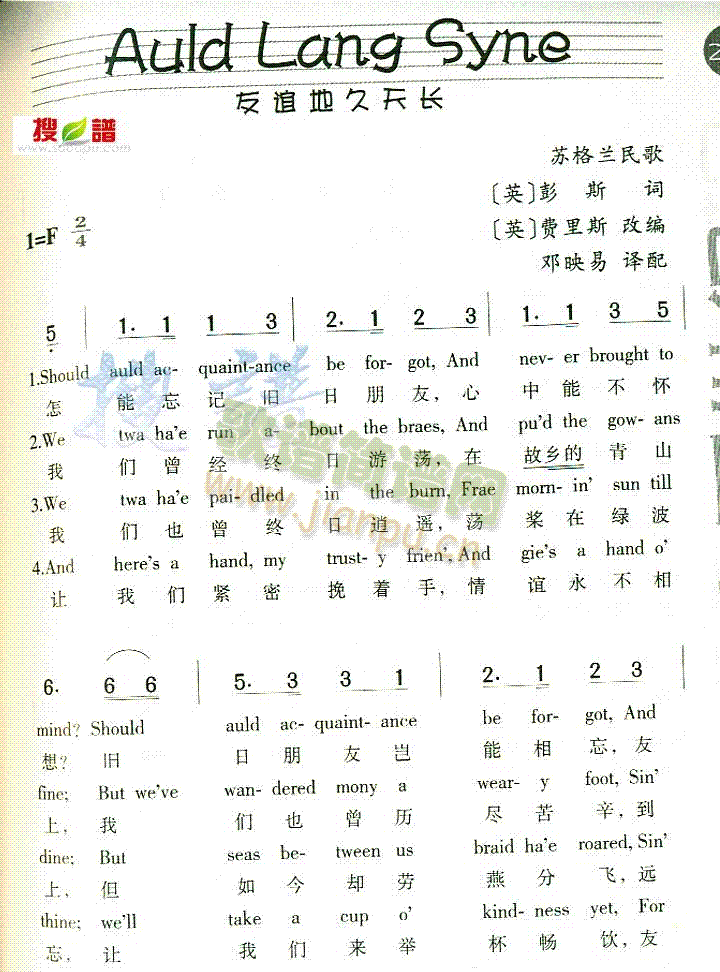 Auld Lang Syne
2
友谊地久天长
搜谱
www.sooopu.com
苏格兰民歌
〔英〕彭 斯 词
1=F 2/4
〔英〕费里斯 改编
邓映易 译配
5 | 1. 1 1 3 | 2. 1 2 3 | 1. 1 3 5
1.Should auld ac- quaint-ance be for- got, And nev- er brought to
怎 能 忘 记 旧 日 朋 友, 心 中 能 不 怀
2.We twa ha'e run a- bout the braes, And pu'd the gow- ans
我 们 曾 经 终 日 游 荡, 在 故乡的 青 山
3.We twa ha'e pai- dled in the burn, Frae morn- in' sun till
我 们 也 曾 终 日 逍 遥, 荡 桨 在 绿 波
4.And here's a hand, my trust- y frien', And gie's a hand o'
让 我 们 紧 密 挽 着 手, 情 谊 永 不 相
歌谱简谱网
www.jianpu.cn
6. 6 6 | 5. 3 3 1 | 2. 1 2 3
mind? Should auld ac- quaint- ance be for- got, And
想? 旧 日 朋 友 岂 能 相 忘, 友
fine; But we've wan- dered mony a wear- y foot, Sin'
上, 我 们 也 曾 历 尽 苦 辛, 到
dine; But seas be- tween us braid ha'e roared, Sin'
上, 但 如 今 却 劳 燕 分 飞, 远
thine; we'll take a cup o' kind- ness yet, For
忘, 让 我 们 来 举 杯 畅 饮, 友